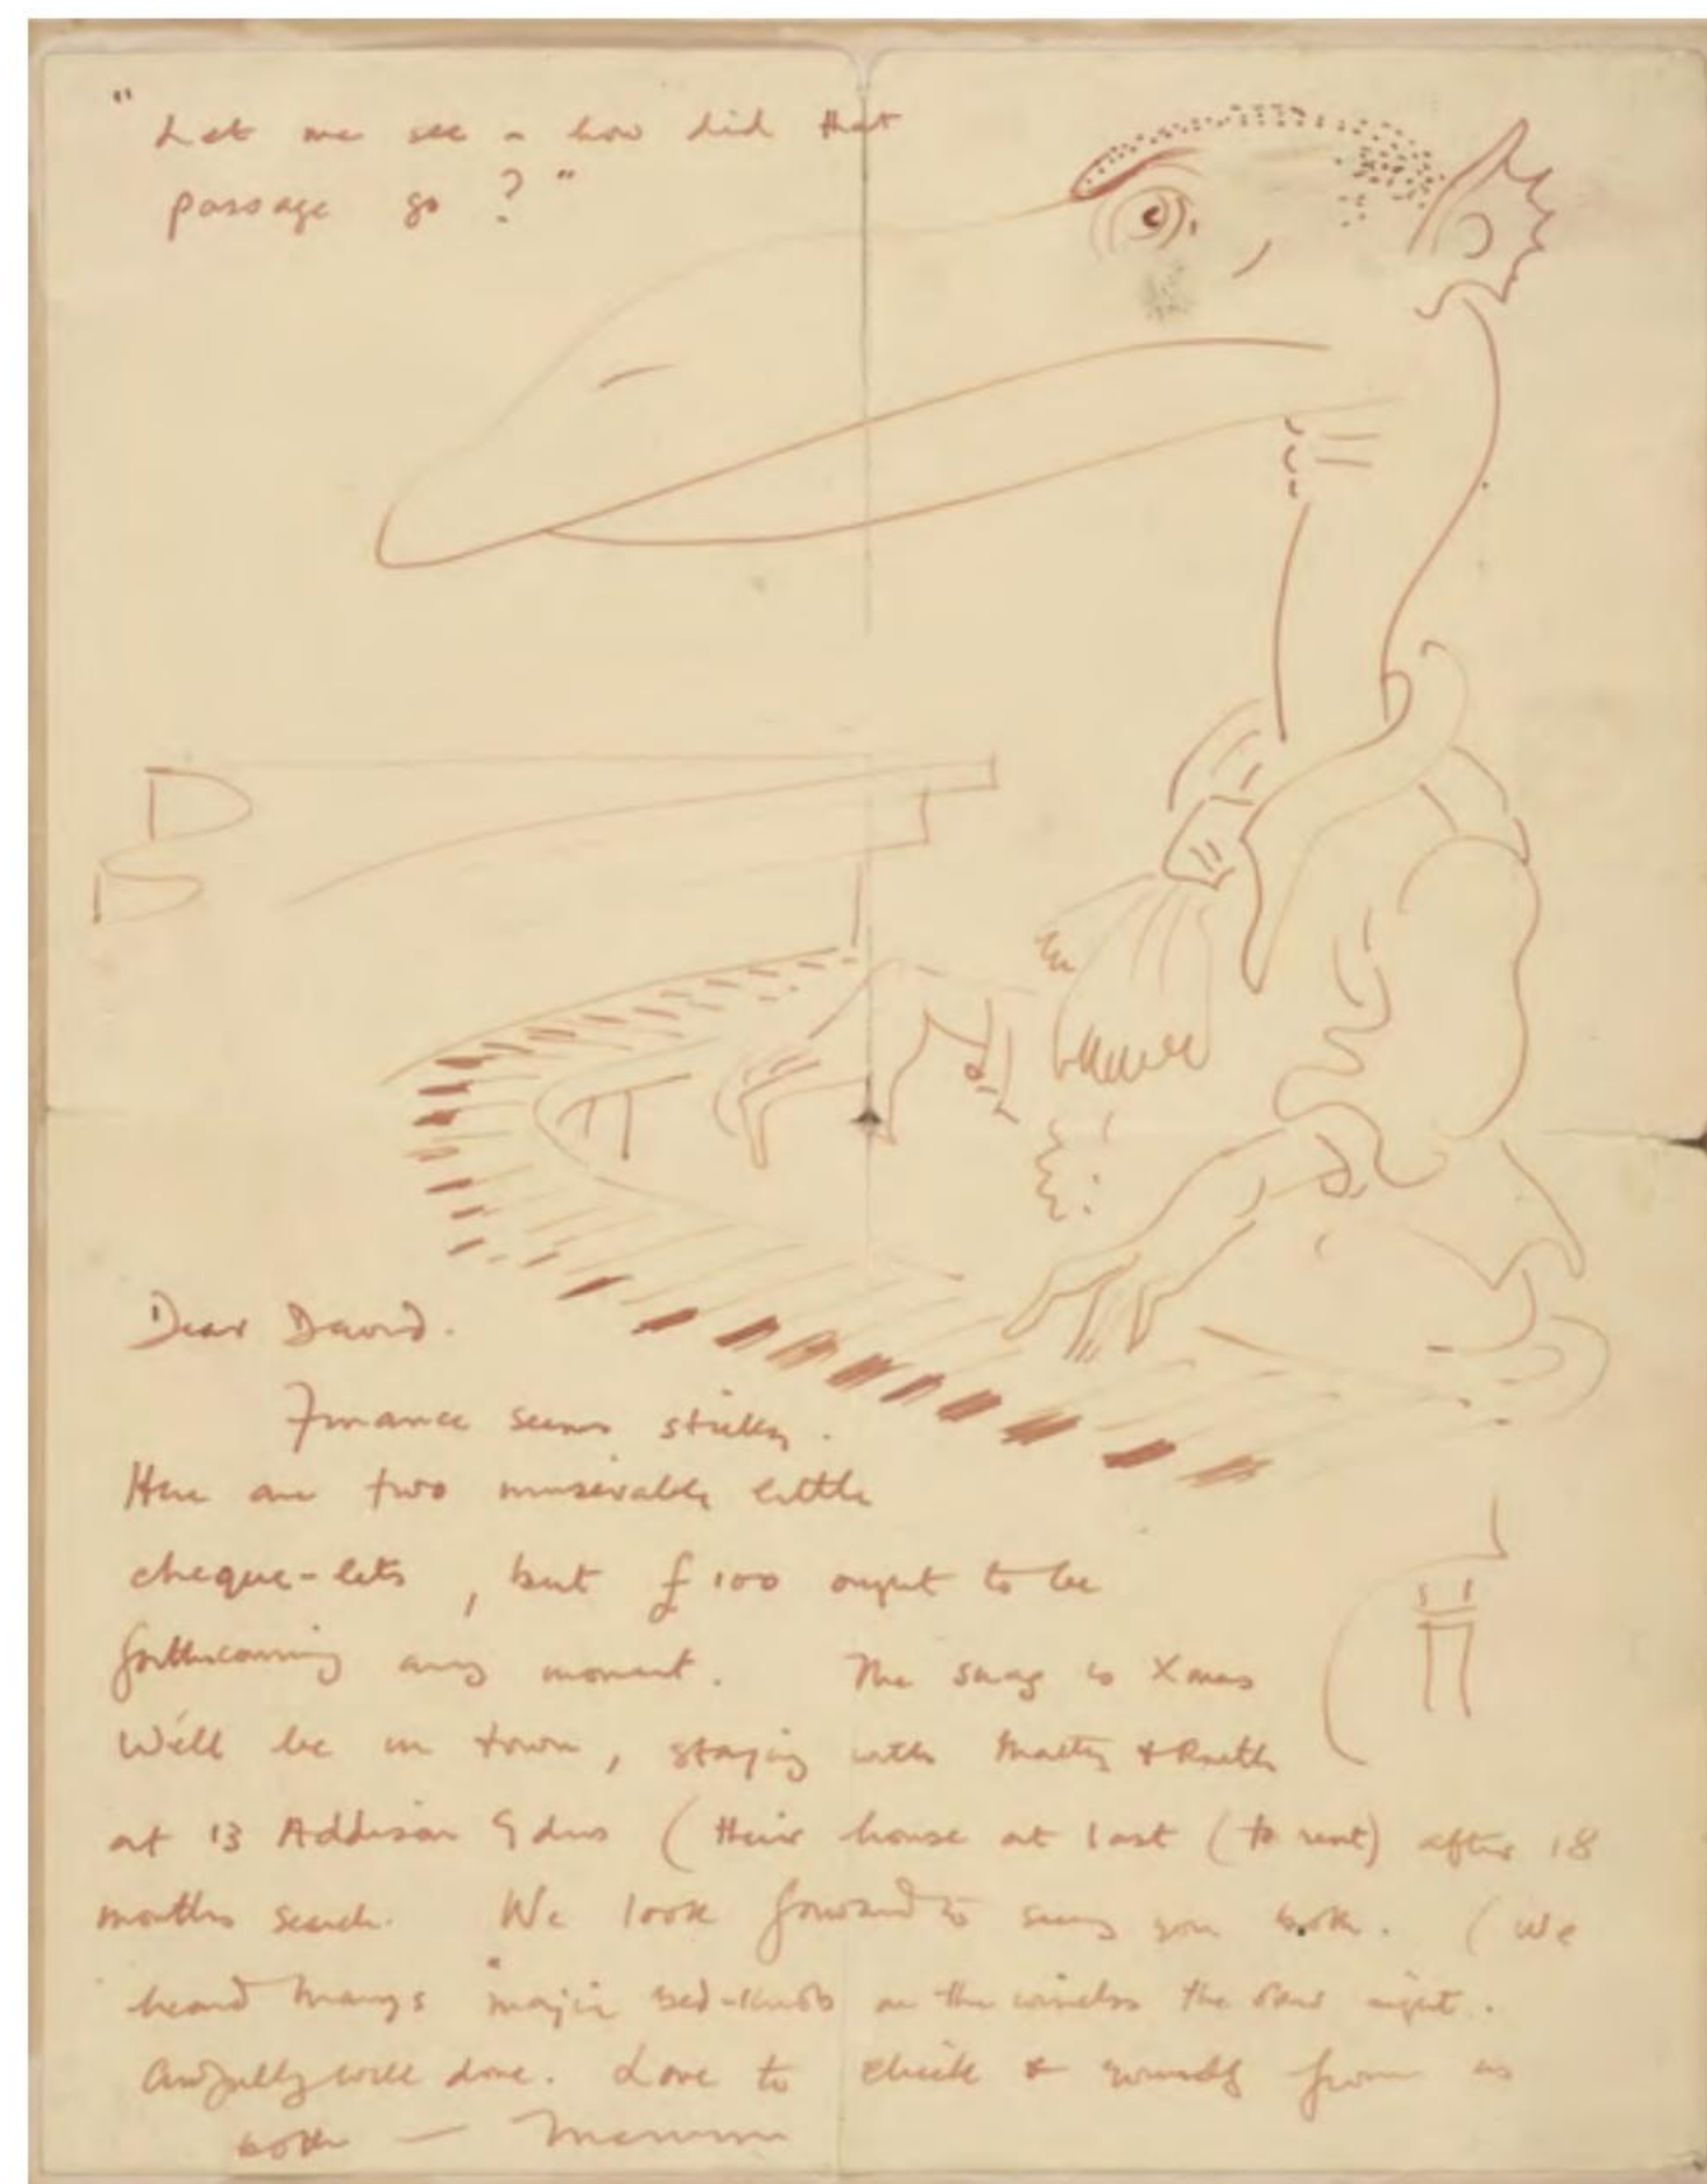 "Let me see - how did that
passage go?"
Dear David.
Finance seems sticky.
Here are two miserable little
cheque-lets, but £100 ought to be
forthcoming any moment. The snag is Xmas
We'll be in town, staying with Matty & Ruth
at 13 Addison Gdns (their house at last (to rent) after 18
months search. We look forward to seeing you both. (We
heard Mary's "magic Bed-knob on the wireless the other night.
Awfully well done. Love to & yourself from us
both —